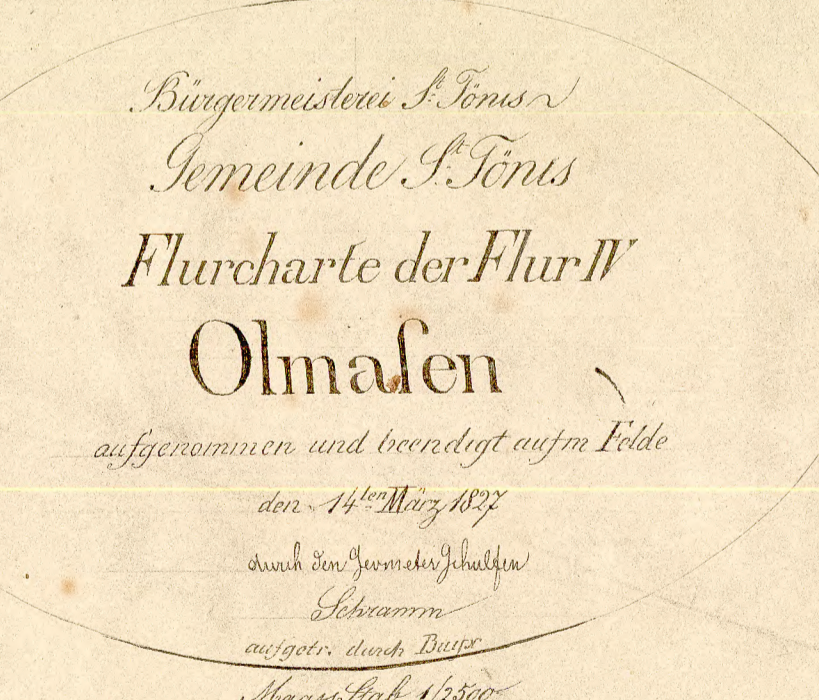 Bürgermeisterei St. Tönis
Gemeinde St. Tönis
Flurcharte der Flur IV
Olmaſen
aufgenommen und beendigt aufm Felde
den 14ten März 1827
durch den Geometer Gehülfen
Schramm
aufgetr. durch Buyx
Maas Stab 1/2500